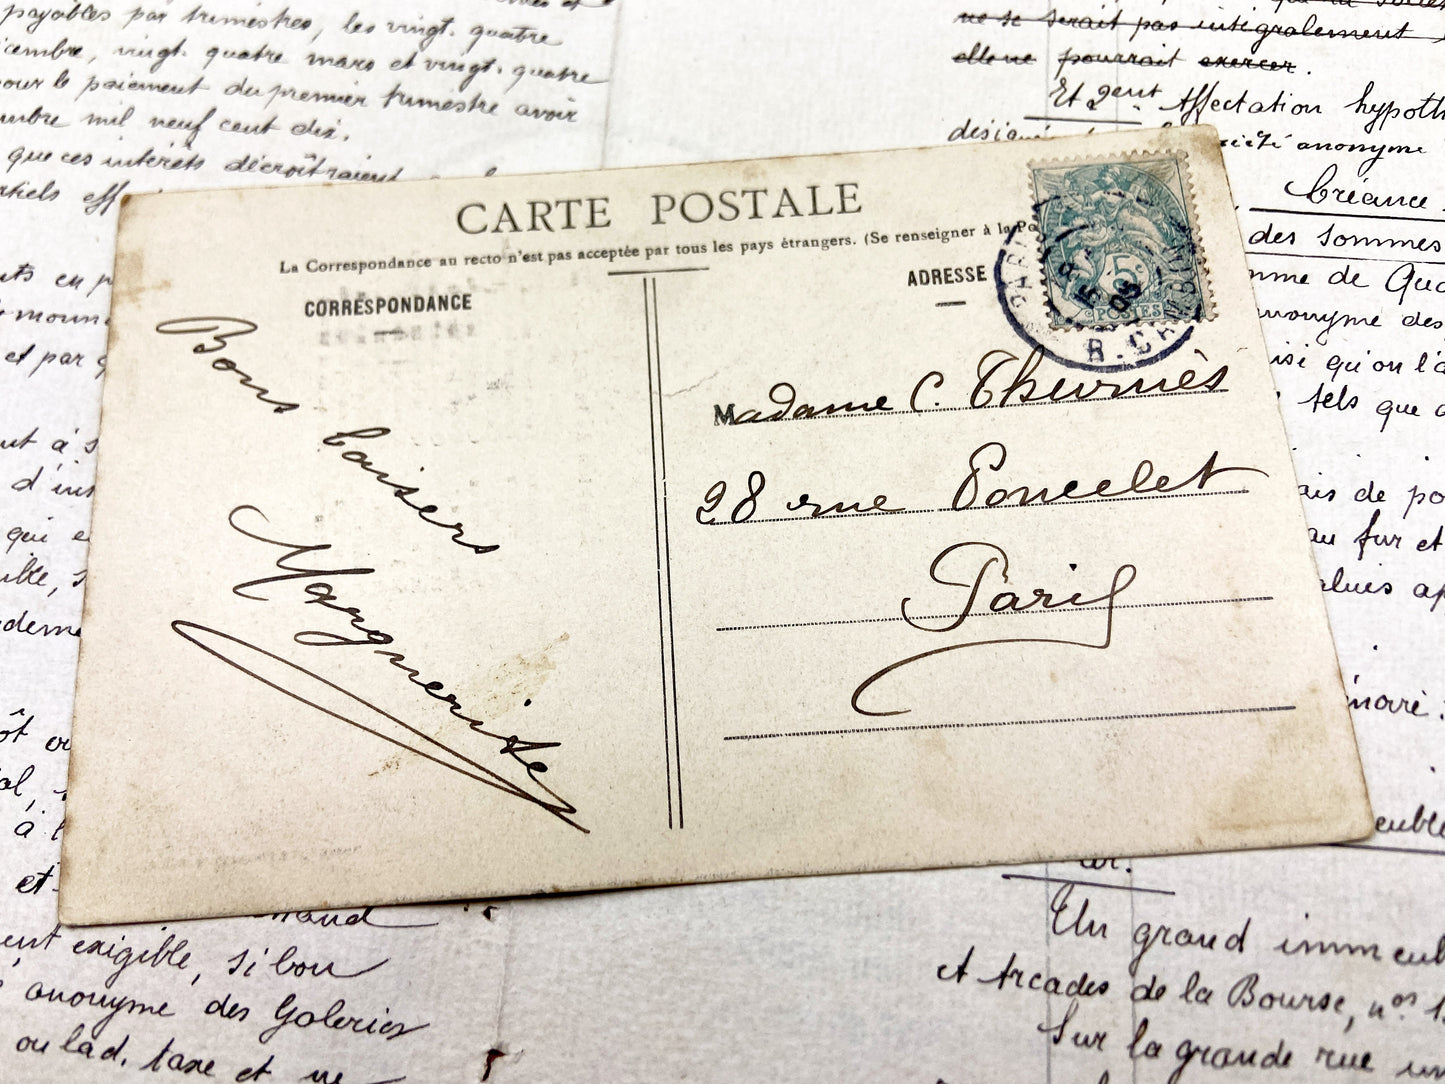 payables par trimestres, les vingt-quatre
vingt-quatre mars et vingt-quatre
pour le paiement du premier trimestre avoir
mil neuf cent dix.
que ces intérêts décroîtraient
ne se serait pas intégralement
elle ne pourrait exercer.
Et 2ent Affectation
anonyme
Créance
des sommes
me de
anonyme des
qu'on l'a
tels que
de
au fur et
CARTE POSTALE
La Correspondance au recto n'est pas acceptée par tous les pays étrangers. (Se renseigner à la Po
CORRESPONDANCE
Bons baisers
Marguerite
ADRESSE
5c
POSTES
PARIS
05
R. CAMBON
Madame C. Thurniès
28 rue Poncelet
Paris
et par
à
d'in
qui
et
exigible, si bon
anonyme des Galeries
ou lad. taxe et ne
Un grand immeub
et Arcades de la Bourse, nos
Sur la grande rue